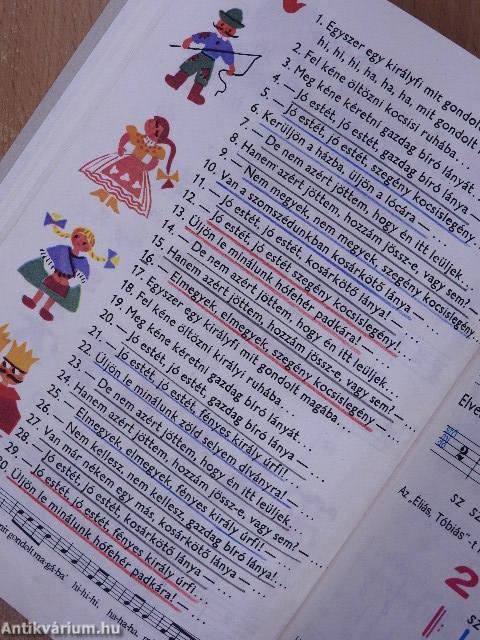 1. Egyszer egy királyfi mit gondolt
hi, hi, hi, ha, ha, ha, mit gondolt
2. Fel kéne öltözni kocsisi ruhába. . .
3. Meg kéne kéretni gazdag bíró lányát. . .
4. — Jó estét, jó estét, gazdag bíró lánya —
5. — Jó estét, jó estét, szegény kocsislegény. . .
6. Kerüljön a házba, üljön a lócára — . . .
7. — De nem azért jöttem, hogy én itt leüljek. . .
8. Hanem azért jöttem, hozzám jössz-e, vagy sem? — . . .
9. — Nem megyek, nem megyek, szegény kocsislegény
10. Van a szomszédunkban kosárkötő lánya — . . .
11. — Jó estét, jó estét, kosárkötő lánya! — . . .
12. — Jó estét, jó estét szegény kocsislegény!. . .
13. Üljön le minálunk hófehér padkára! — . . .
14. — De nem azért jöttem, hogy én itt leüljek. . .
15. Hanem azért jöttem, hozzám jössz-e, vagy sem? — . . .
16. — Elmegyek, elmegyek, szegény kocsislegény — . . .
17. Egyszer egy királyfi mit gondolt magába. . .
18. Fel kéne öltözni király ruhába. . .
19. Meg kéne kéretni gazdag bíró lányát. . .
20. — Jó estét, jó estét, gazdag bíró lánya — . . .
21. — Jó estét, jó estét, fényes király úrfi!
22. Üljön le minálunk zöld selyem díványra! — . . .
23. — De nem azért jöttem, hogy én itt leüljek. . .
24. Hanem azért jöttem, hozzám jössz-e, vagy sem? — . . .
25. — Elmegyek, elmegyek, fényes király úrfi! — . . .
26. — Nem kellesz, nem kellesz, gazdag bíró lánya!. . .
27. Van már nékem egy más, kosárkötő lánya — . . .
28. — Jó estét, jó estét, kosárkötő lánya — . . .
29. — Jó estét, jó estét, fényes király úrfi. . .
30. Üljön le minálunk hófehér padkára! — . . .
mit gondolt magába. hi-hi-hi, ha-ha-ha,
Elve
SZ SZ
Az „Éliás, Tóbiás”-t
2
Antikvárium.hu